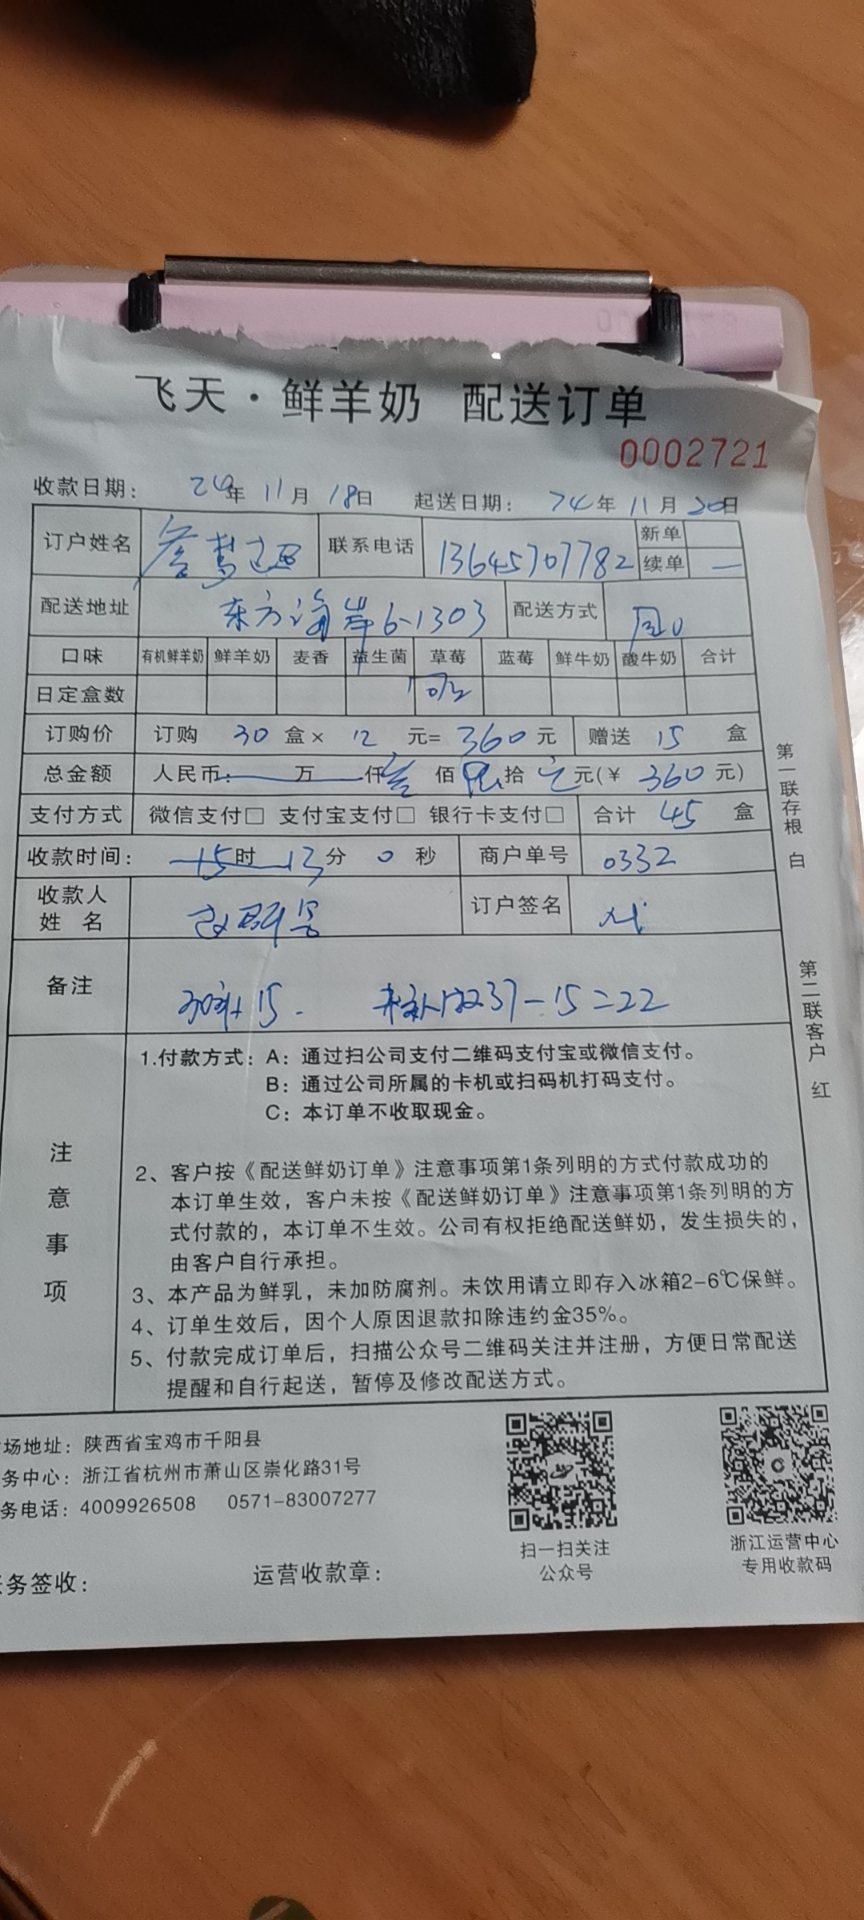 飞天·鲜羊奶 配送订单
0002721
收款日期： 24年 11月 18日 起送日期： 24年 11月 20日
订户姓名 联系电话 13645707782 新单
续单 —
配送地址 东方海岸6-1303 配送方式
口味 有机鲜羊奶 鲜羊奶 麦香 益生菌 草莓 蓝莓 鲜牛奶 酸牛奶 合计
日定盒数
订购价 订购 30 盒× 12 元= 360 元 赠送 15 盒
总金额 人民币： 万 仟 叁 佰 陆 拾 元(¥ 360 元)
支付方式 微信支付□ 支付宝支付□ 银行卡支付□ 合计 45 盒
收款时间： 15时 13分 0 秒 商户单号 0332
收款人姓名 订户签名
备注 +15. 37-15=22
注意事项
1.付款方式：A：通过扫公司支付二维码支付宝或微信支付。
B：通过公司所属的卡机或扫码机打码支付。
C：本订单不收取现金。
2、客户按《配送鲜奶订单》注意事项第1条列明的方式付款成功的
本订单生效，客户未按《配送鲜奶订单》注意事项第1条列明的方
式付款的，本订单不生效。公司有权拒绝配送鲜奶，发生损失的，
由客户自行承担。
3、本产品为鲜乳，未加防腐剂。未饮用请立即存入冰箱2-6℃保鲜。
4、订单生效后，因个人原因退款扣除违约金35%。
5、付款完成订单后，扫描公众号二维码关注并注册，方便日常配送
提醒和自行起送，暂停及修改配送方式。
第一联存根 白
第二联客户 红
场地址：陕西省宝鸡市千阳县
务中心：浙江省杭州市萧山区崇化路31号
务电话：4009926508 0571-83007277
扫一扫关注
公众号
浙江运营中心
专用收款码
务签收： 运营收款章：